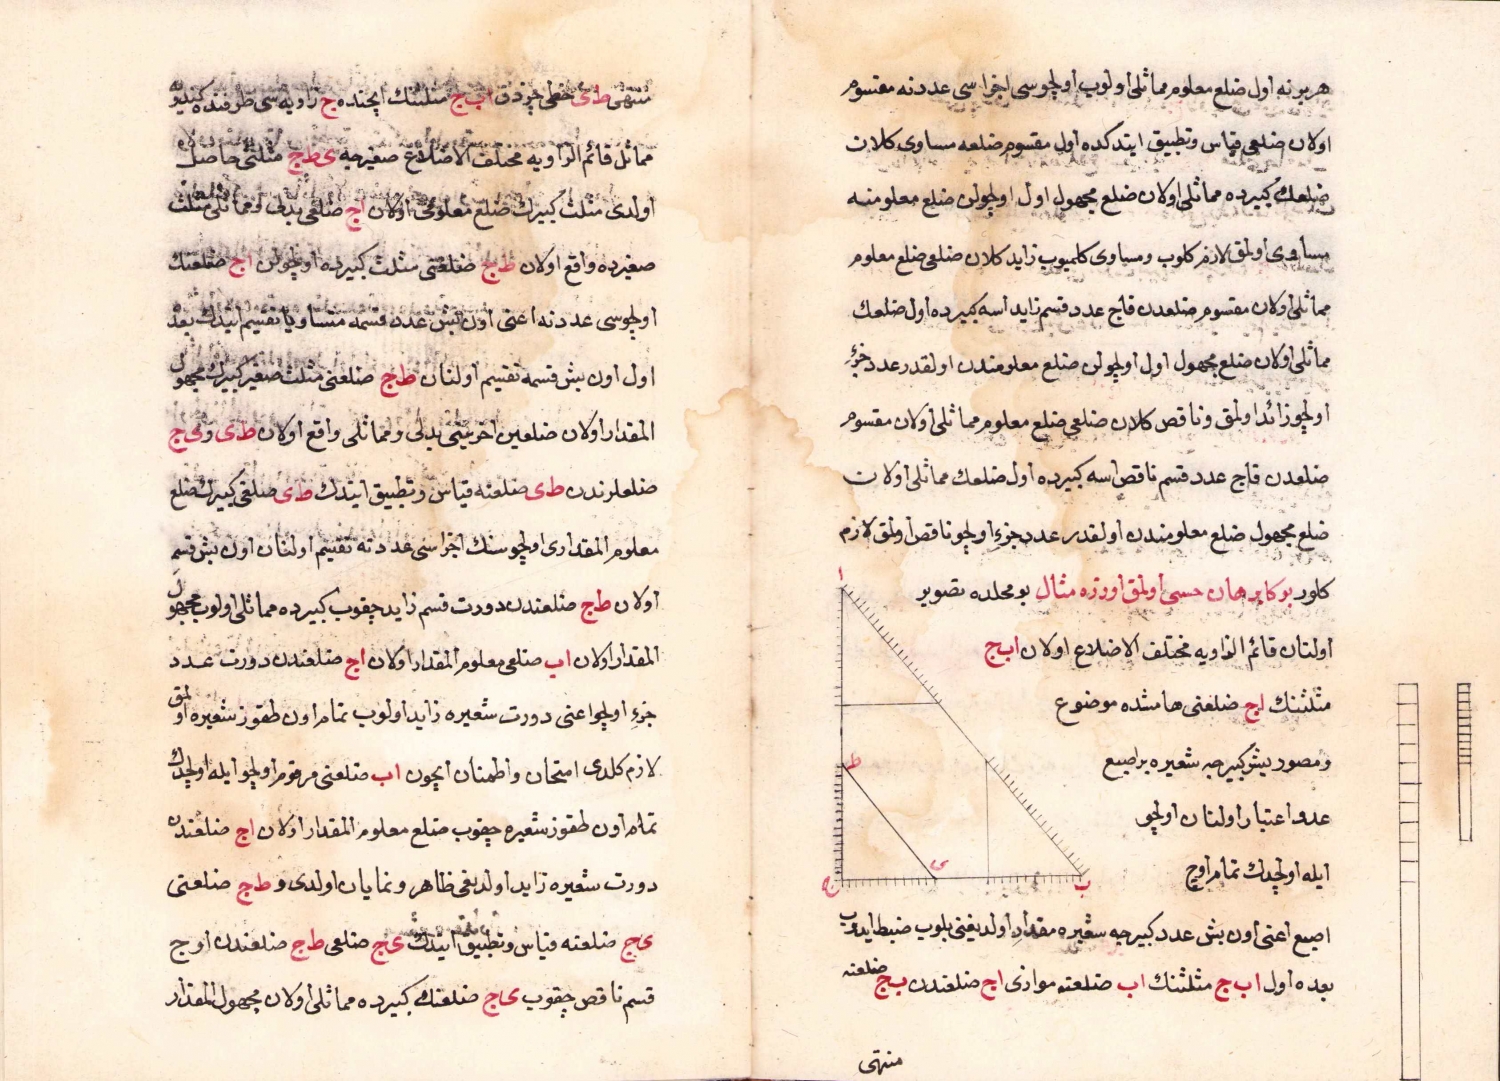 هر برنه اول ضلع معلوم مماثلى اولوب اولچوسى اجزاسى عددنه مقسوم
اولان ضلعى قياس وتطبيق ايتدكده اول مقسوم ضلعه مساوى كلان
ضلعك كبيرده مماثلى اولان ضلع مجهول اول اولچولن ضلع معلومنه
مساوى اولمق لازم كلوب ومساوى كلميوب زايد كلان ضلعى ضلع معلوم
مماثلى اولان مقسوم ضلعدن قاچ عدد قسم زايد اسه كبيرده اول ضلعك
مماثلى اولان ضلع مجهول اول اولچولن ضلع معلومندن اولقدر عدد جزء
اولچو زائد اولمق وناقص كلان ضلعى ضلع معلوم مماثلى اولان مقسوم
ضلعدن قاچ عدد قسم ناقص اسه كبيرده اول ضلعك مماثلى اولان
ضلع مجهول ضلع معلومندن اولقدر عدد جزء اولچو ناقص اولمق لازم
كلور بوكا برهان حسى اولمق اوزره مثال بو محلده تصوير
اولنان قائم الزاويه مختلف الاضلاع اولان ابج
مثلثنك اج ضلعنى هامشده موضوع
ومصور بيش كبيرجه شعيره بر اصبع
عد واعتبار اولنان اولچو
ايله اولچدك تمام اوچ
اصبع اعنى اون بش عدد كبيرجه شعيره مقدار اولديغنى بلوب ضبط ايدوب
بعده اول ابج مثلثنك اب ضلعنه موازى اج ضلعندن بج ضلعنه
منتهى
ا
ط
ى
ج
ب
منتهى طى خطى چزدق ابج مثلثنك ايچنده ج زاويه سى طرفنده كندويه
مماثل قائم الزاويه مختلف الاضلاع صغيرجه ىطج مثلثى حاصل
اولدى مثلث كبيرك ضلع معلومى اولان اج ضلعى بدلى ومماثلى مثلث
صغيرده واقع اولان طج ضلعنى مثلث كبيرده اولچولن اج ضلعنك
اولچوسى عددنه اعنى اون بش عدد قسمه متساويا تقسيم ايتدك بعده
اول اون بش قسمه تقسيم اولنان طج ضلعنى مثلث صغير كبيرك مجهول
المقدار اولان ضلعين اخريينى بدلى ومماثلى واقع اولان طى و ىج
ضلعلرندن طى ضلعنه قياس وتطبيق ايتدك طى ضلعى كبيرك ضلع
معلوم المقدارى اولچوسنك اجزاسى عددنه تقسيم اولنان اون بش قسم
اولان طج ضلعندن دورت قسم زايد چقوب كبيرده مماثلى اولوب مجهول
المقدار اولان اب ضلعى معلوم المقدار اولان اج ضلعندن دورت عدد
جزء اولچو اعنى دورت شعيره زايد اولوب تمام اون طقوز شعيره اولمق
لازم كلدى امتحان واطمنان ايچون اب ضلعنى مرقوم اولچو ايله اولچدك
تمام اون طقوز شعيره چقوب ضلع معلوم المقدار اولان اج ضلعندن
دورت شعيره زايد اولديغى ظاهر ونمايان اولدى و طج ضلعنى
ىج ضلعنه قياس وتطبيق ايتدك ىج ضلعى طج ضلعندن اوچ
قسم ناقص چقوب ىج ضلعنك كبيرده مماثلى اولان مجهول المقدار